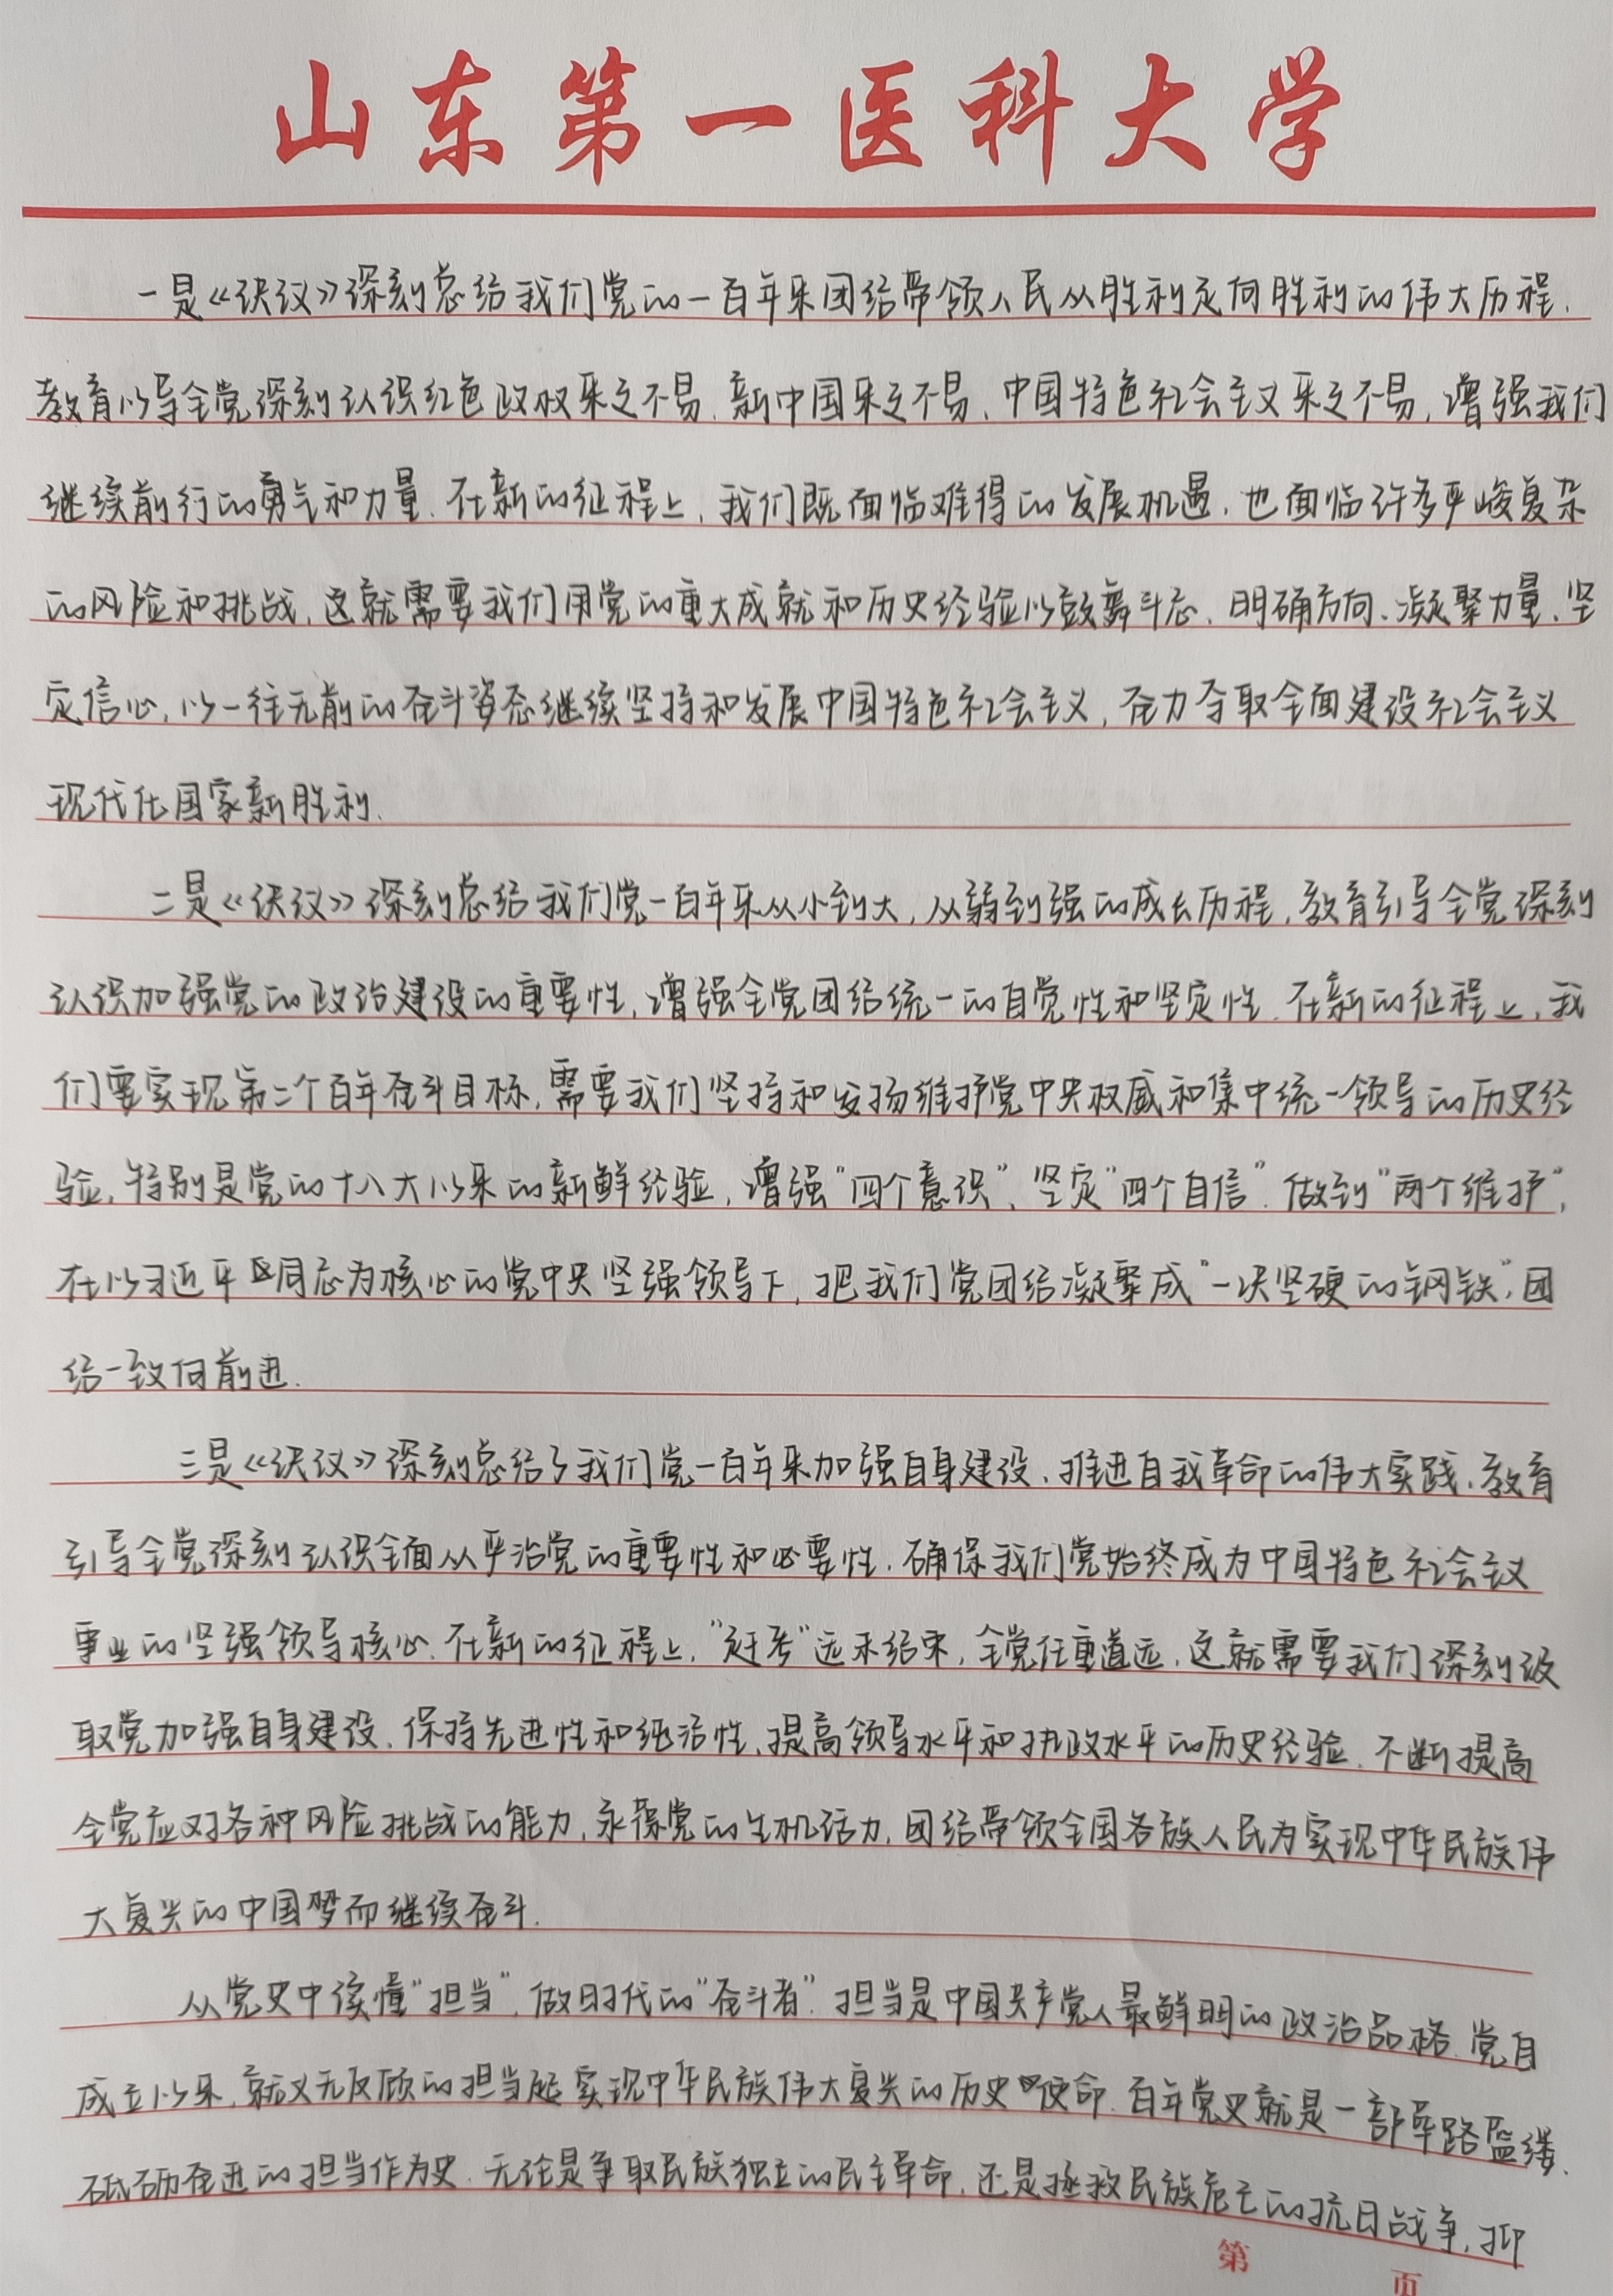 山东第一医科大学
一是《决议》深刻总结我们党的一百年来团结带领人民从胜利走向胜利的伟大历程.
教育以导全党深刻认识红色政权来之不易、新中国来之不易、中国特色社会主义来之不易,增强我们
继续前行的勇气和力量.在新的征程上,我们既面临难得的发展机遇,也面临许多严峻复杂
的风险和挑战,这就需要我们用党的重大成就和历史经验以鼓舞斗志、明确方向、凝聚力量、坚
定信心,以一往无前的奋斗姿态继续坚持和发展中国特色社会主义,奋力夺取全面建设社会主义
现代化国家新胜利.
二是《决议》深刻总结我们党一百年来从小到大,从弱到强的成长历程,教育引导全党深刻
认识加强党的政治建设的重要性,增强全党团结统一的自觉性和坚定性.在新的征程上,我
们要实现第二个百年奋斗目标,需要我们坚持和发扬维护党中央权威和集中统一领导的历史经
验,特别是党的十八大以来的新鲜经验,增强“四个意识”、坚定“四个自信”.做到“两个维护”,
在以习近平同志为核心的党中央坚强领导下,把我们党团结凝聚成“一块坚硬的钢铁”,团
结一致向前进.
三是《决议》深刻总结了我们党一百年来加强自身建设、推进自我革命的伟大实践,教育
引导全党深刻认识全面从严治党的重要性和必要性.确保我们党始终成为中国特色社会主义
事业的坚强领导核心.在新的征程上,“赶考”远未结束,全党任重道远,这就需要我们深刻汲
取党加强自身建设、保持先进性和纯洁性、提高领导水平和执政水平的历史经验.不断提高
全党应对各种风险挑战的能力,永葆党的生机活力,团结带领全国各族人民为实现中华民族伟
大复兴的中国梦而继续奋斗.
从党史中读懂“担当”,做时代的“奋斗者”.担当是中国共产党人最鲜明的政治品格.党自
成立以来,就义无反顾的担当起实现中华民族伟大复兴的历史使命.百年党史就是一部筚路蓝缕、
砥砺奋进的担当作为史.无论是争取民族独立的民主革命,还是拯救民族危亡的抗日战争,抑
第 页